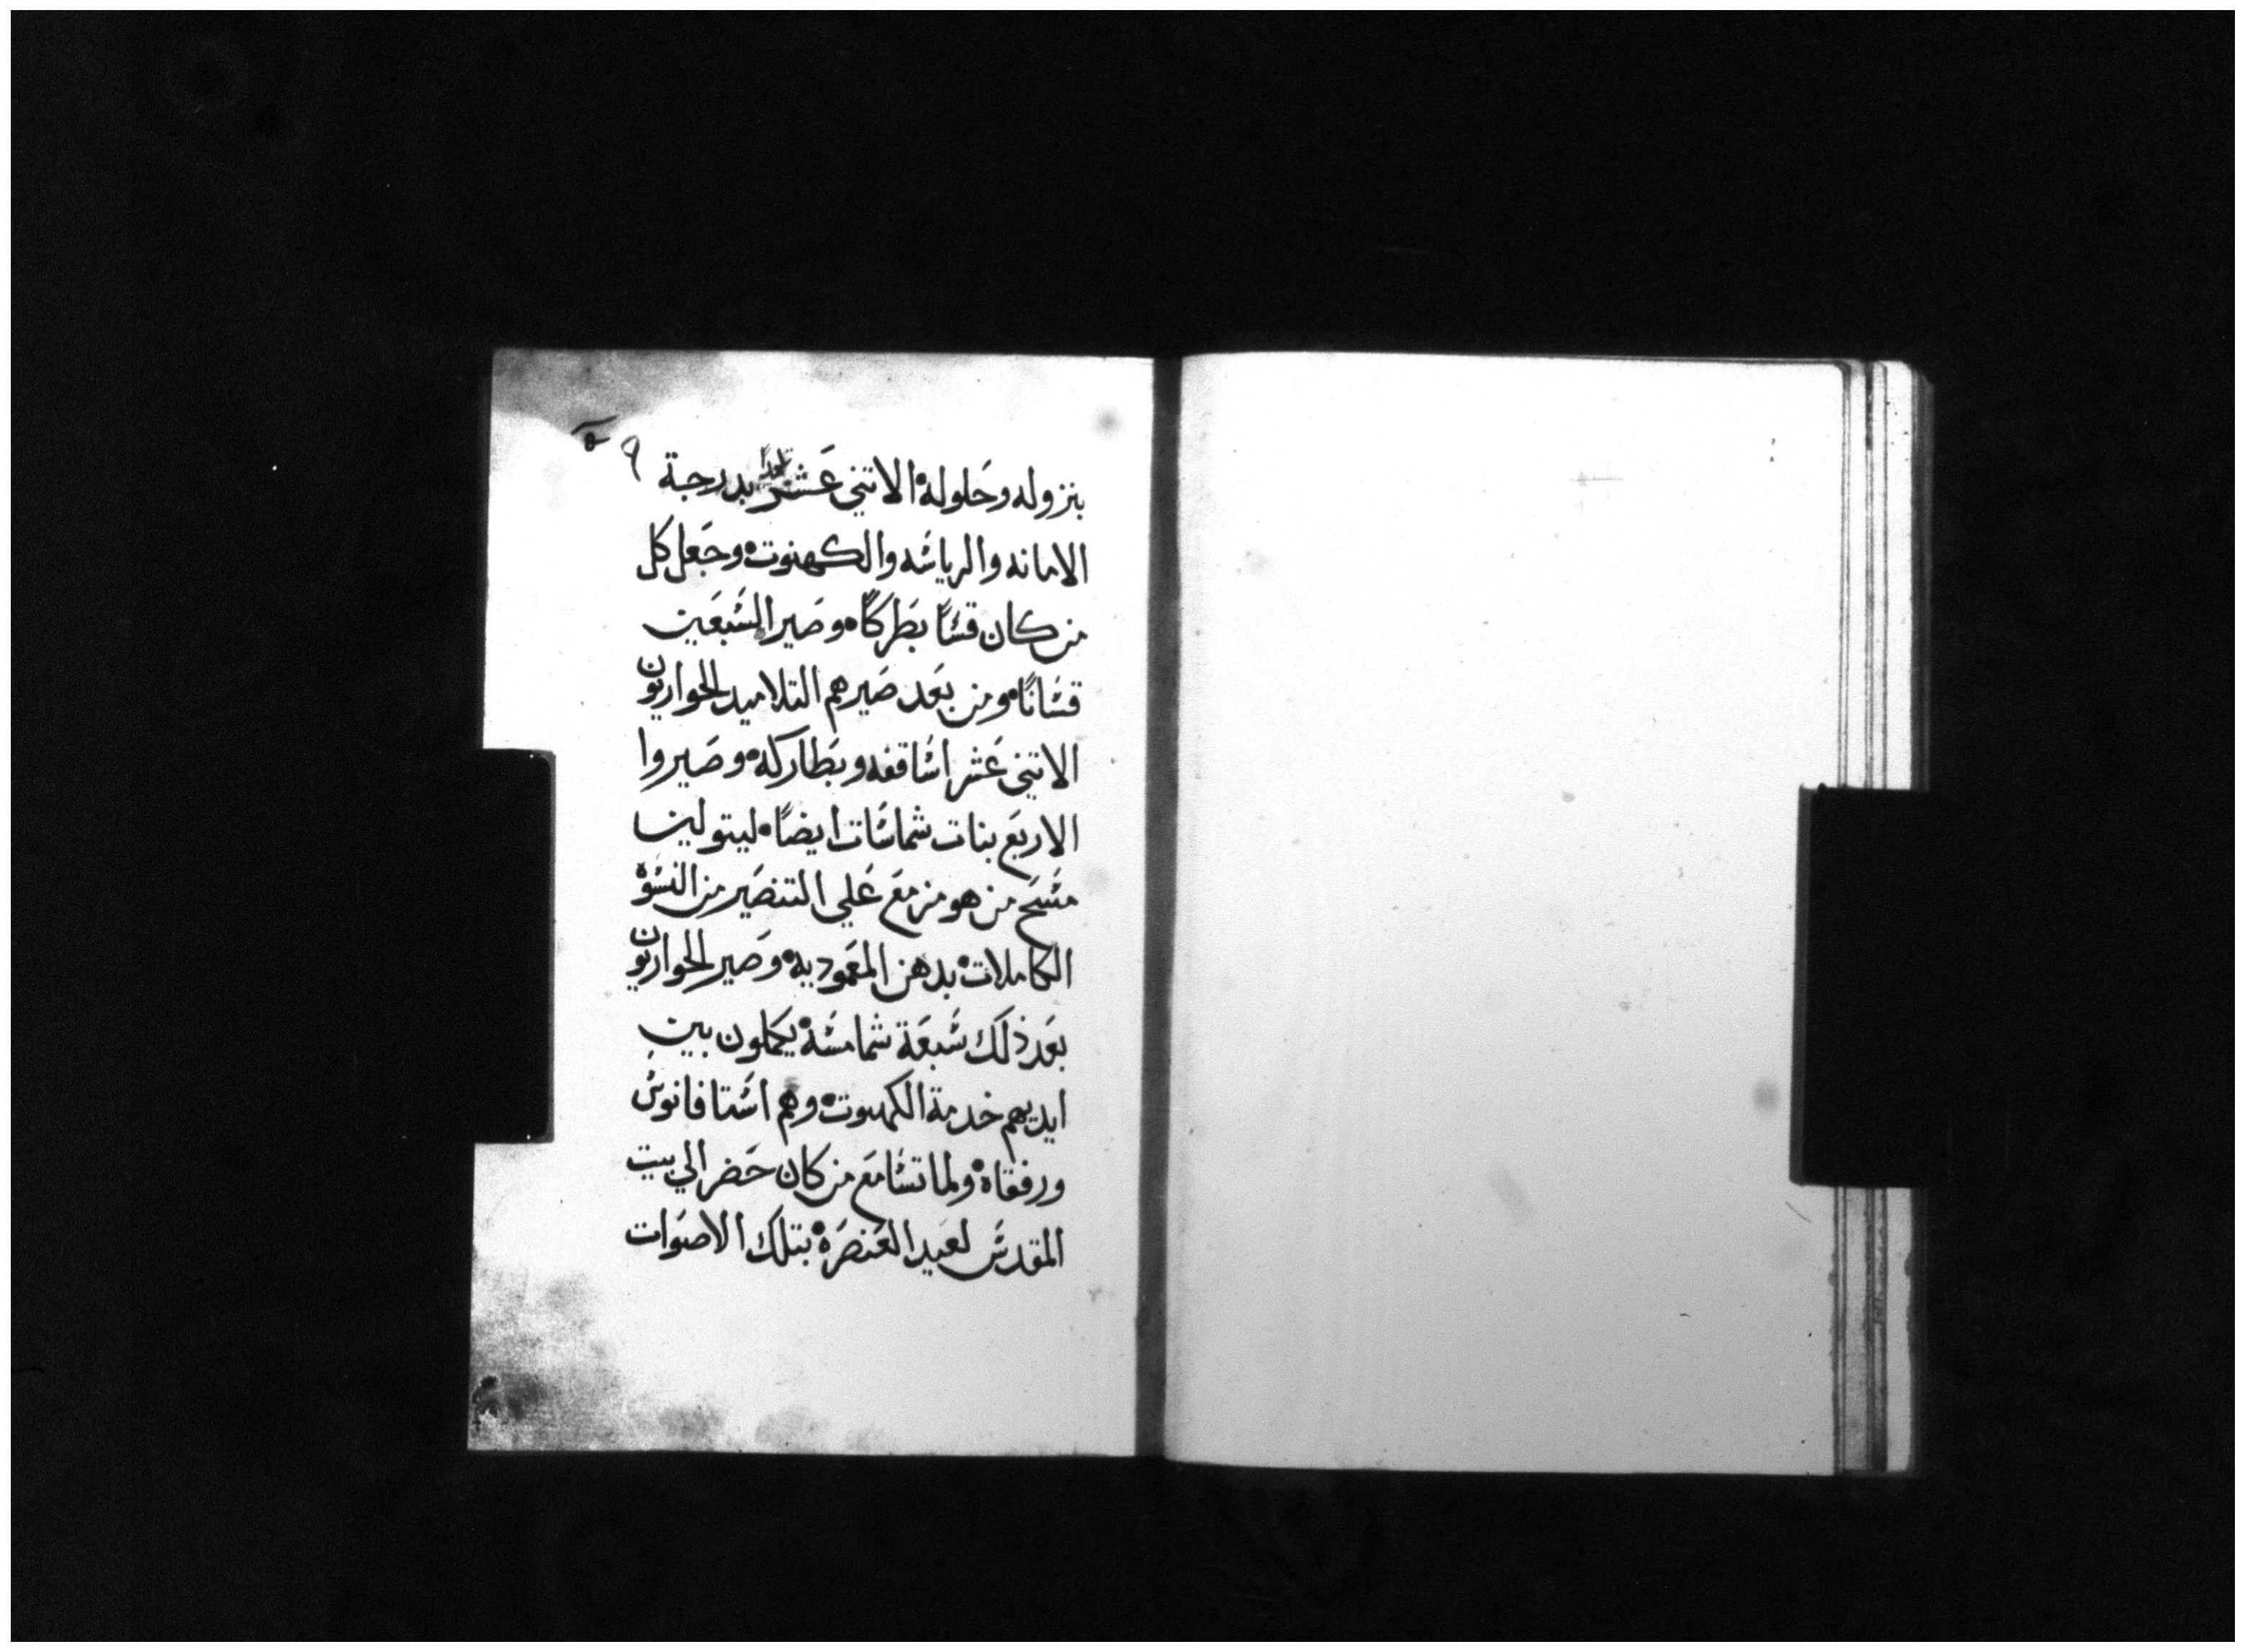 ٩
بنزوله وحلوله الاتني عَشر بدرجة
الامانه والرياسَه والكهنوت وجَعل كل
من كان قسًا بطركًا وصَير السَبعَين
قسَانًا ومن بَعد صَيرهم التلاميد الحواريون
الاتني عَشر اسَاقفه وبطاركه وصَيروا
الاربَع بنات شماسَات ايضًا ليتولين
مسَح من هو مزمع عَلي التنصَير من النسَوة
الكاملات بدهن المعَموديه وصَير الحواريون
بعَد ذلك سَبعَة شمامسَة يكملون بين
ايديهم خدمة الكهنوت وهم اسَتافانوسَ
ورفقاه ولما تسَامعَ من كان حَضر الي بيت
المقدسَ لعَيد العَنصَرة بتلك الاصَوات